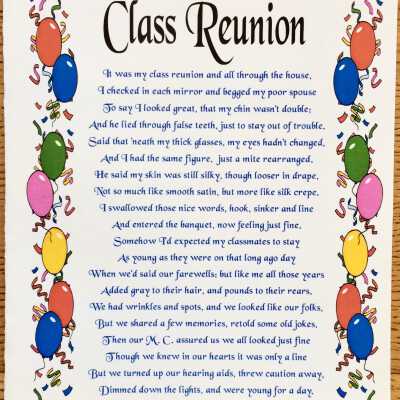 Class Reunion
It was my class reunion and all through the house,
I checked in each mirror and begged my poor spouse
To say I looked great, that my chin wasn't double;
And he lied through false teeth, just to stay out of trouble.
Said that 'neath my thick glasses, my eyes hadn't changed,
And I had the same figure, just a mite rearranged.
He said my skin was still silky, though looser in drape,
Not so much like smooth satin, but more like silk crepe.
I swallowed those nice words, hook, sinker and line
And entered the banquet, now feeling just fine,
Somehow I'd expected my classmates to stay
As young as they were on that long ago day
When we'd said our farewells; but like me all those years
Added gray to their hair, and pounds to their rears,
We had wrinkles and spots, and we looked like our folks,
But we shared a few memories, retold some old jokes,
Then our M. C. assured us we all looked just fine
Though we knew in our hearts it was only a line
But we turned up our hearing aids, threw caution away,
Dimmed down the lights, and were young for a day.